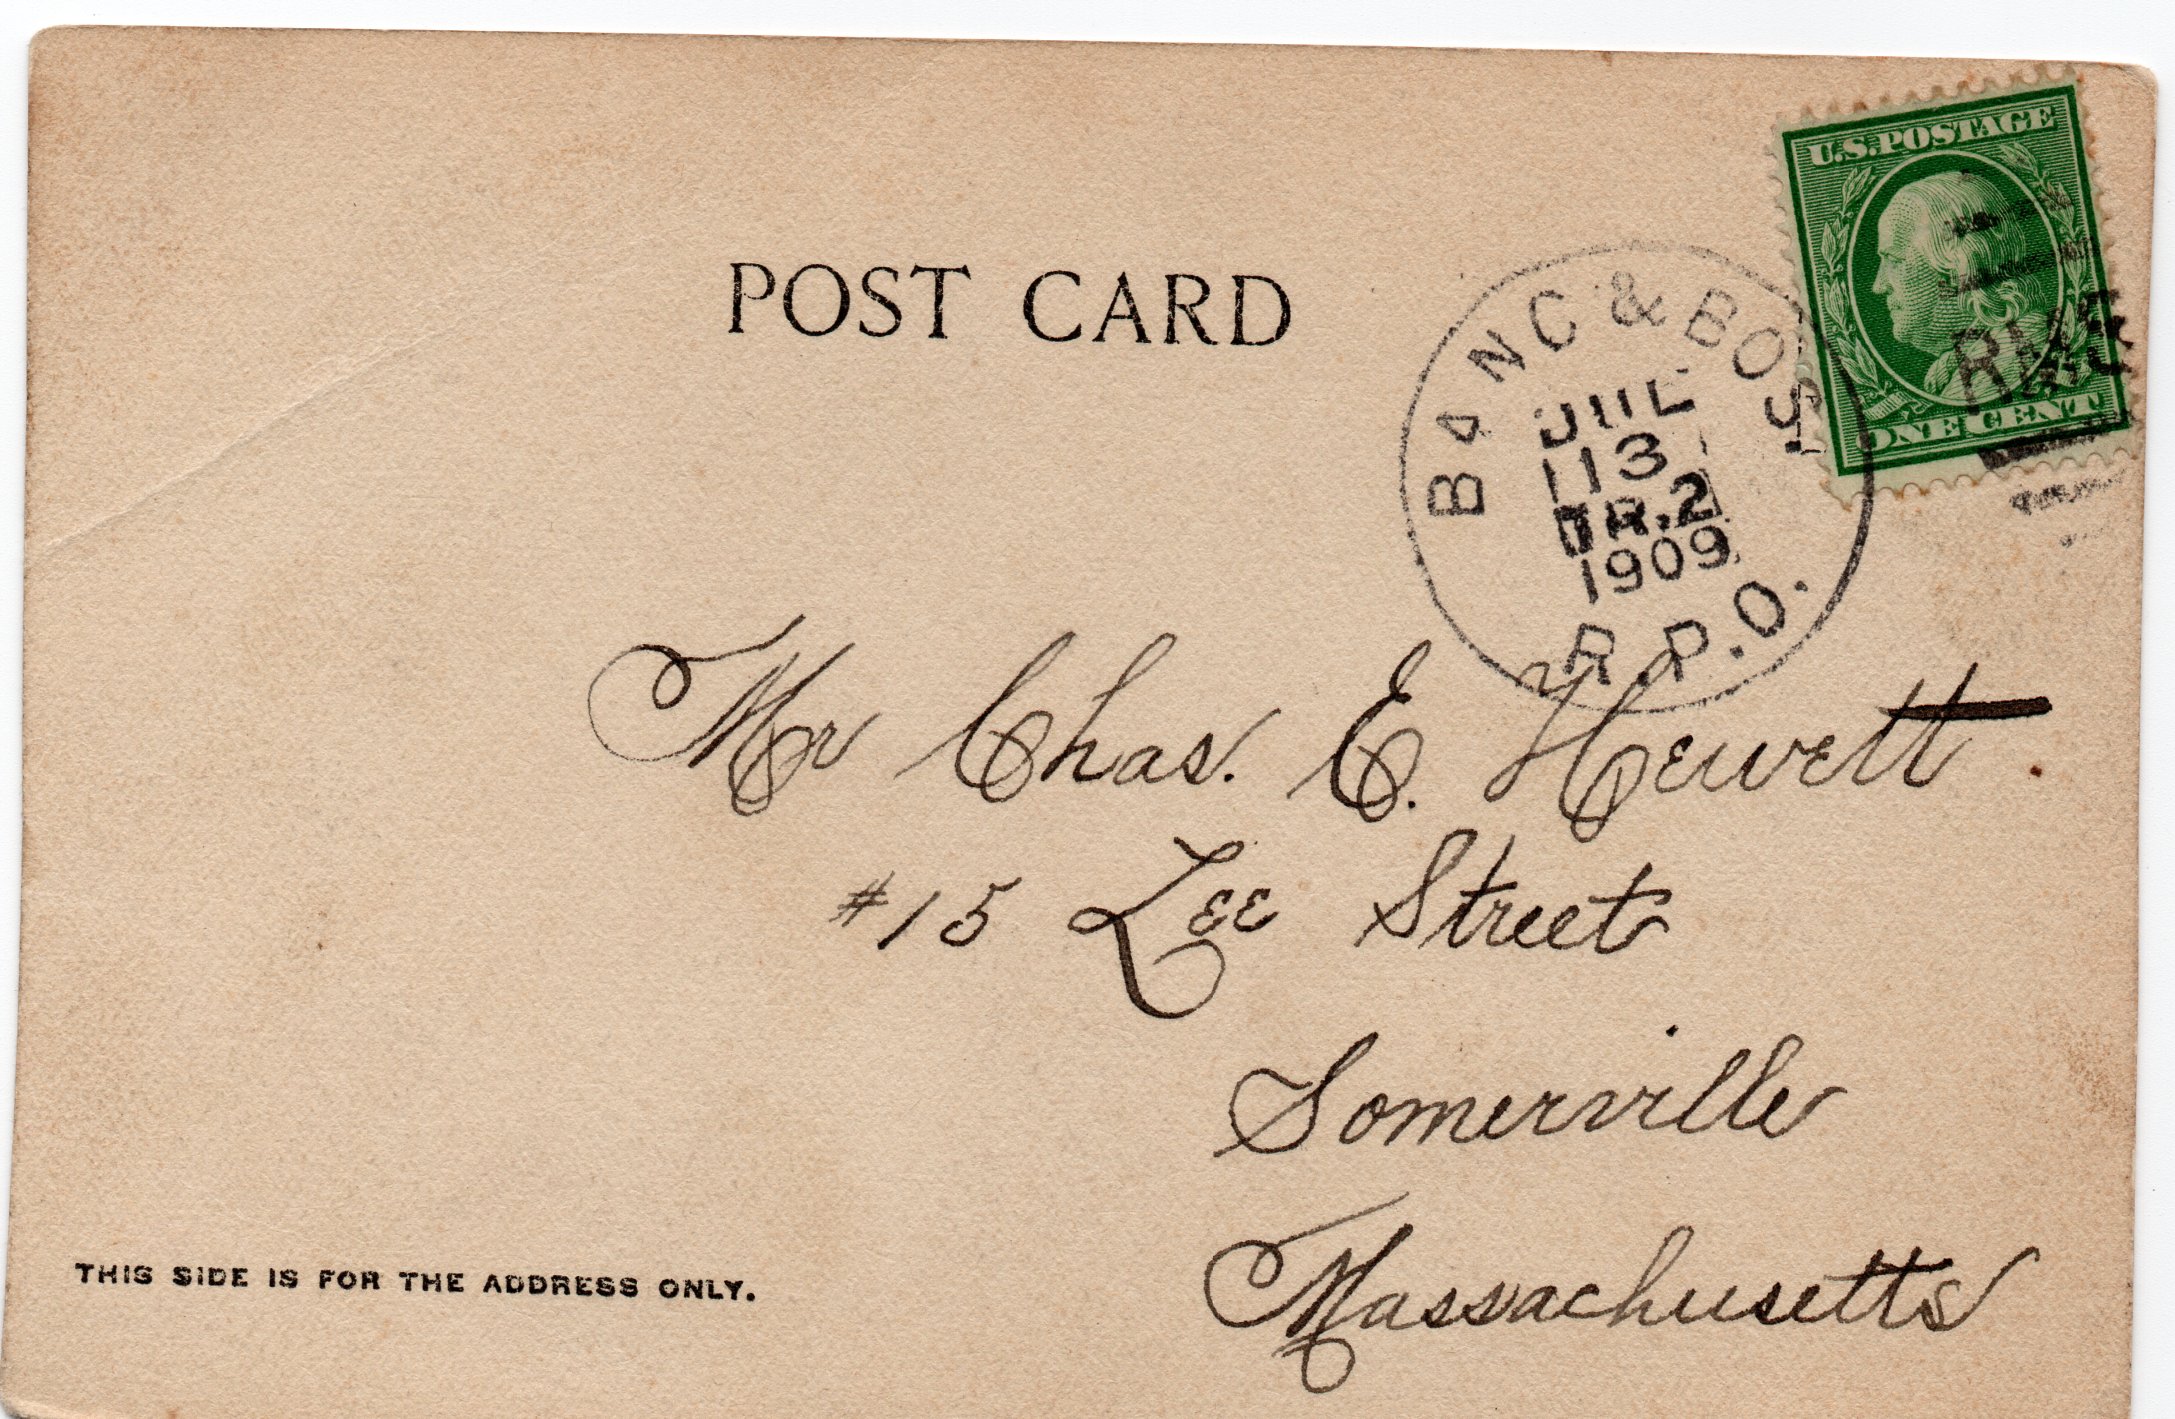 U.S. POSTAGE
POST CARD
BANC & BOS.
JUL
13
TR.2
1909
R.P.O.
ONE CENT
Mr Chas. E. Hewett
#15 Lee Street
Somerville
Massachusetts
THIS SIDE IS FOR THE ADDRESS ONLY.